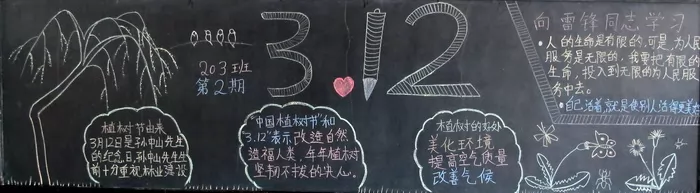 203班
第2期
3.12
向雷锋同志学习
·人的生命是有限的,可是,为人民
服务是无限的,我要把有限的
生命,投入到无限的为人民服
务中去。
·自己活着,就是使别人活得更美
植树节由来
3月12日是孙中山先生
的纪念日,孙中山先生生
前十分重视林业建设
"中国植树节"和
"3.12"表示改造自然
造福人类,年年植树
坚韧不拔的决心。
植树的好处
美化环境
提高空气质量
改善气候